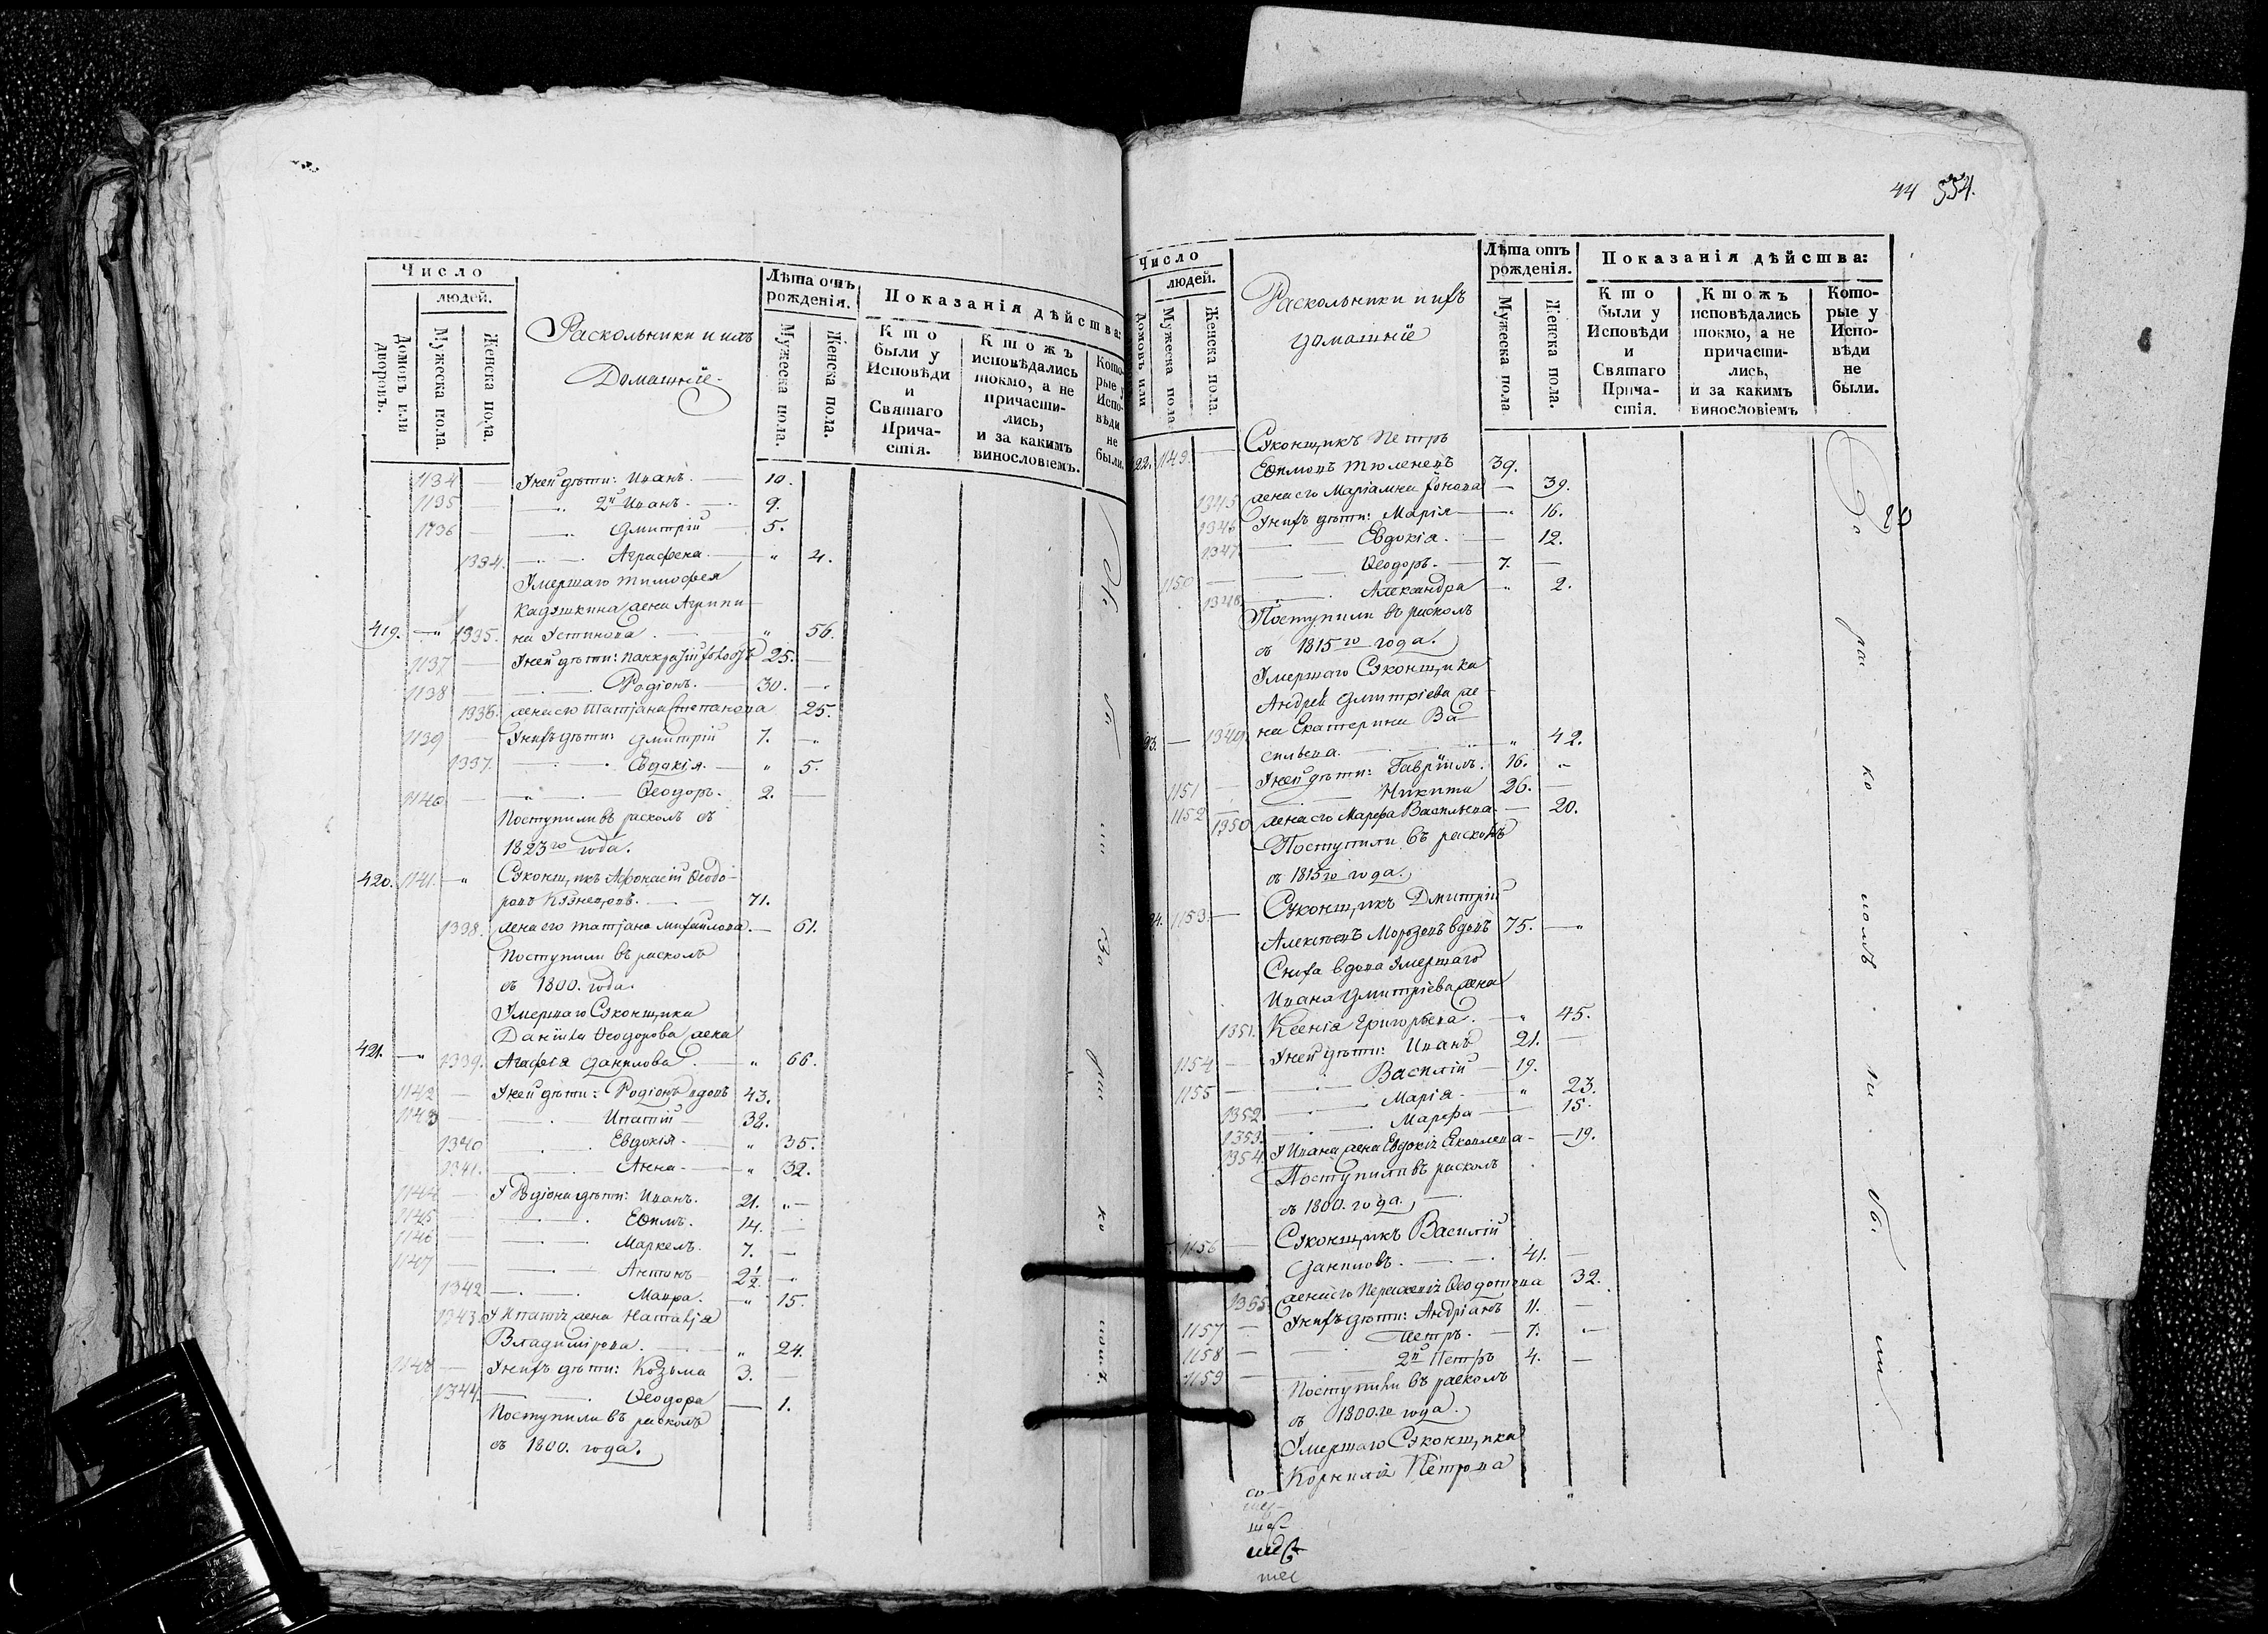 Число
людей.
Домовъ или дворовъ.
Мужеска пола.
Женска пола.
Раскольники и ихъ
Домашніе.
Лѣта отъ рожденія.
Мужеска пола.
Женска пола.
Показанія дѣйства:
Кто были у Исповѣди и Святаго Причастія.
Ктожъ исповѣдались токмо, а не причастились, и за какимъ винословіемъ.
Которые у Исповѣди не были.
1134 — У ней дѣти: Иванъ. — 10.
1135 — 2й Иванъ. — 9.
1136 — Дмитрій 5.
1334. — Аграфена. — " 4.
Умершаго Тимофея
Кадяшкина жена Агрипи
419. — " 1335. на Устинова. — " 56.
1137 — У ней дѣти: Панкратій холостъ 25. —
1138 — Родіонъ. — 30. —
1336. жена его Татіана Степанова 25.
1139 — У нихъ дѣти: Дмитрій 7. —
1337. — Евдокія. — " 5.
1140 — Ѳеодоръ. 2. —
Поступили въ расколъ съ
1823го года.
420. 1141. — " Суконщикъ Афонасій Ѳеодо-
ровъ Кузнецовъ. — 71.
1338. жена его Татіана Михайлова. — 61.
Поступили въ расколъ
съ 1800. года.
Умершаго Суконщика
Даніила Ѳеодорова жена
421. — " 1339. Агафія Данилова. — " 66.
1142 — У ней дѣти: Родіонъ вдовъ 43.
1143 — Ипатій 38.
1340 Евдокія. — " 35.
1341. — Анна — " 32.
1144 — У Родіона дѣти: Иванъ. 21. "—
1145 — Ефимъ. 14. —
1146 — Маркелъ. 7. —
1147 — Антонъ 2 1/2. —
1342 — Мавра. — " 15.
1343. У Ипатія жена Наталія
Владимірова. — " 24.
1148 — У нихъ дѣти: Козьма 3. —
1344. — Ѳеодора — 1.
Поступили въ расколъ
съ 1800. года.
44 554.
Число
людей.
Домовъ или
Мужеска пола
Женска пола.
Раскольники и ихъ
домашніе
Лѣта отъ рожденія.
Мужеска пола
Женска пола.
Показанія дѣйства:
Кто были у Исповѣди и Святаго Причастія.
Ктожъ исповѣдались токмо, а не причастились, и за какимъ винословіемъ
Которые у Исповѣди не были.
Суконщикъ Петръ
22. 1149. — Ефимовъ Тюленевъ 39.
1345 жена его Маріамна — 39.
1346 У нихъ дѣти: Марія — " 16.
1347 — Евдокія. — 12.
1150 — Ѳеодоръ. — 7. —
1348 — Александра " 2.
Поступили въ расколъ
съ 1815го года.
Умершаго Суконщика
Андрея Дмитріева же-
23. — 1349. на Екатерина Ва-
сильева. — " 42.
1151 — У ней дѣти: Гавріилъ. 16. "
1152 — Никита 26. —
1350 жена его Марфа Васильева — 20.
Поступили въ расколъ
съ 1815го года.
24. 1153 — Суконщикъ Дмитрій
Алексѣевъ Морозовъ вдовъ 75. — "
Сноха вдова умершаго
Ивана Дмитріева жена
1351. Ксенія Григорьева. — " 45.
1154 — У ней дѣти: Иванъ 21. —
1155 — Василій — 19.
1352 — Марія. — " 23.
1353. — Марфа — 15.
1354. У Ивана жена Евдокія Яковлева — 19.
Поступили въ расколъ
съ 1800. года. —
1156 — Суконщикъ Василій
Даниловъ. — 41. —
1355 жена его Пераскевія Ѳеодотова 32.
1157 — У нихъ дѣти: Андріанъ 11. —
1158 — Петръ. — 7. "—
1159 — 2й Петръ 4. —
Поступили въ расколъ
съ 1800.го года.
Умершаго Суконщика
Корнилія Петрова